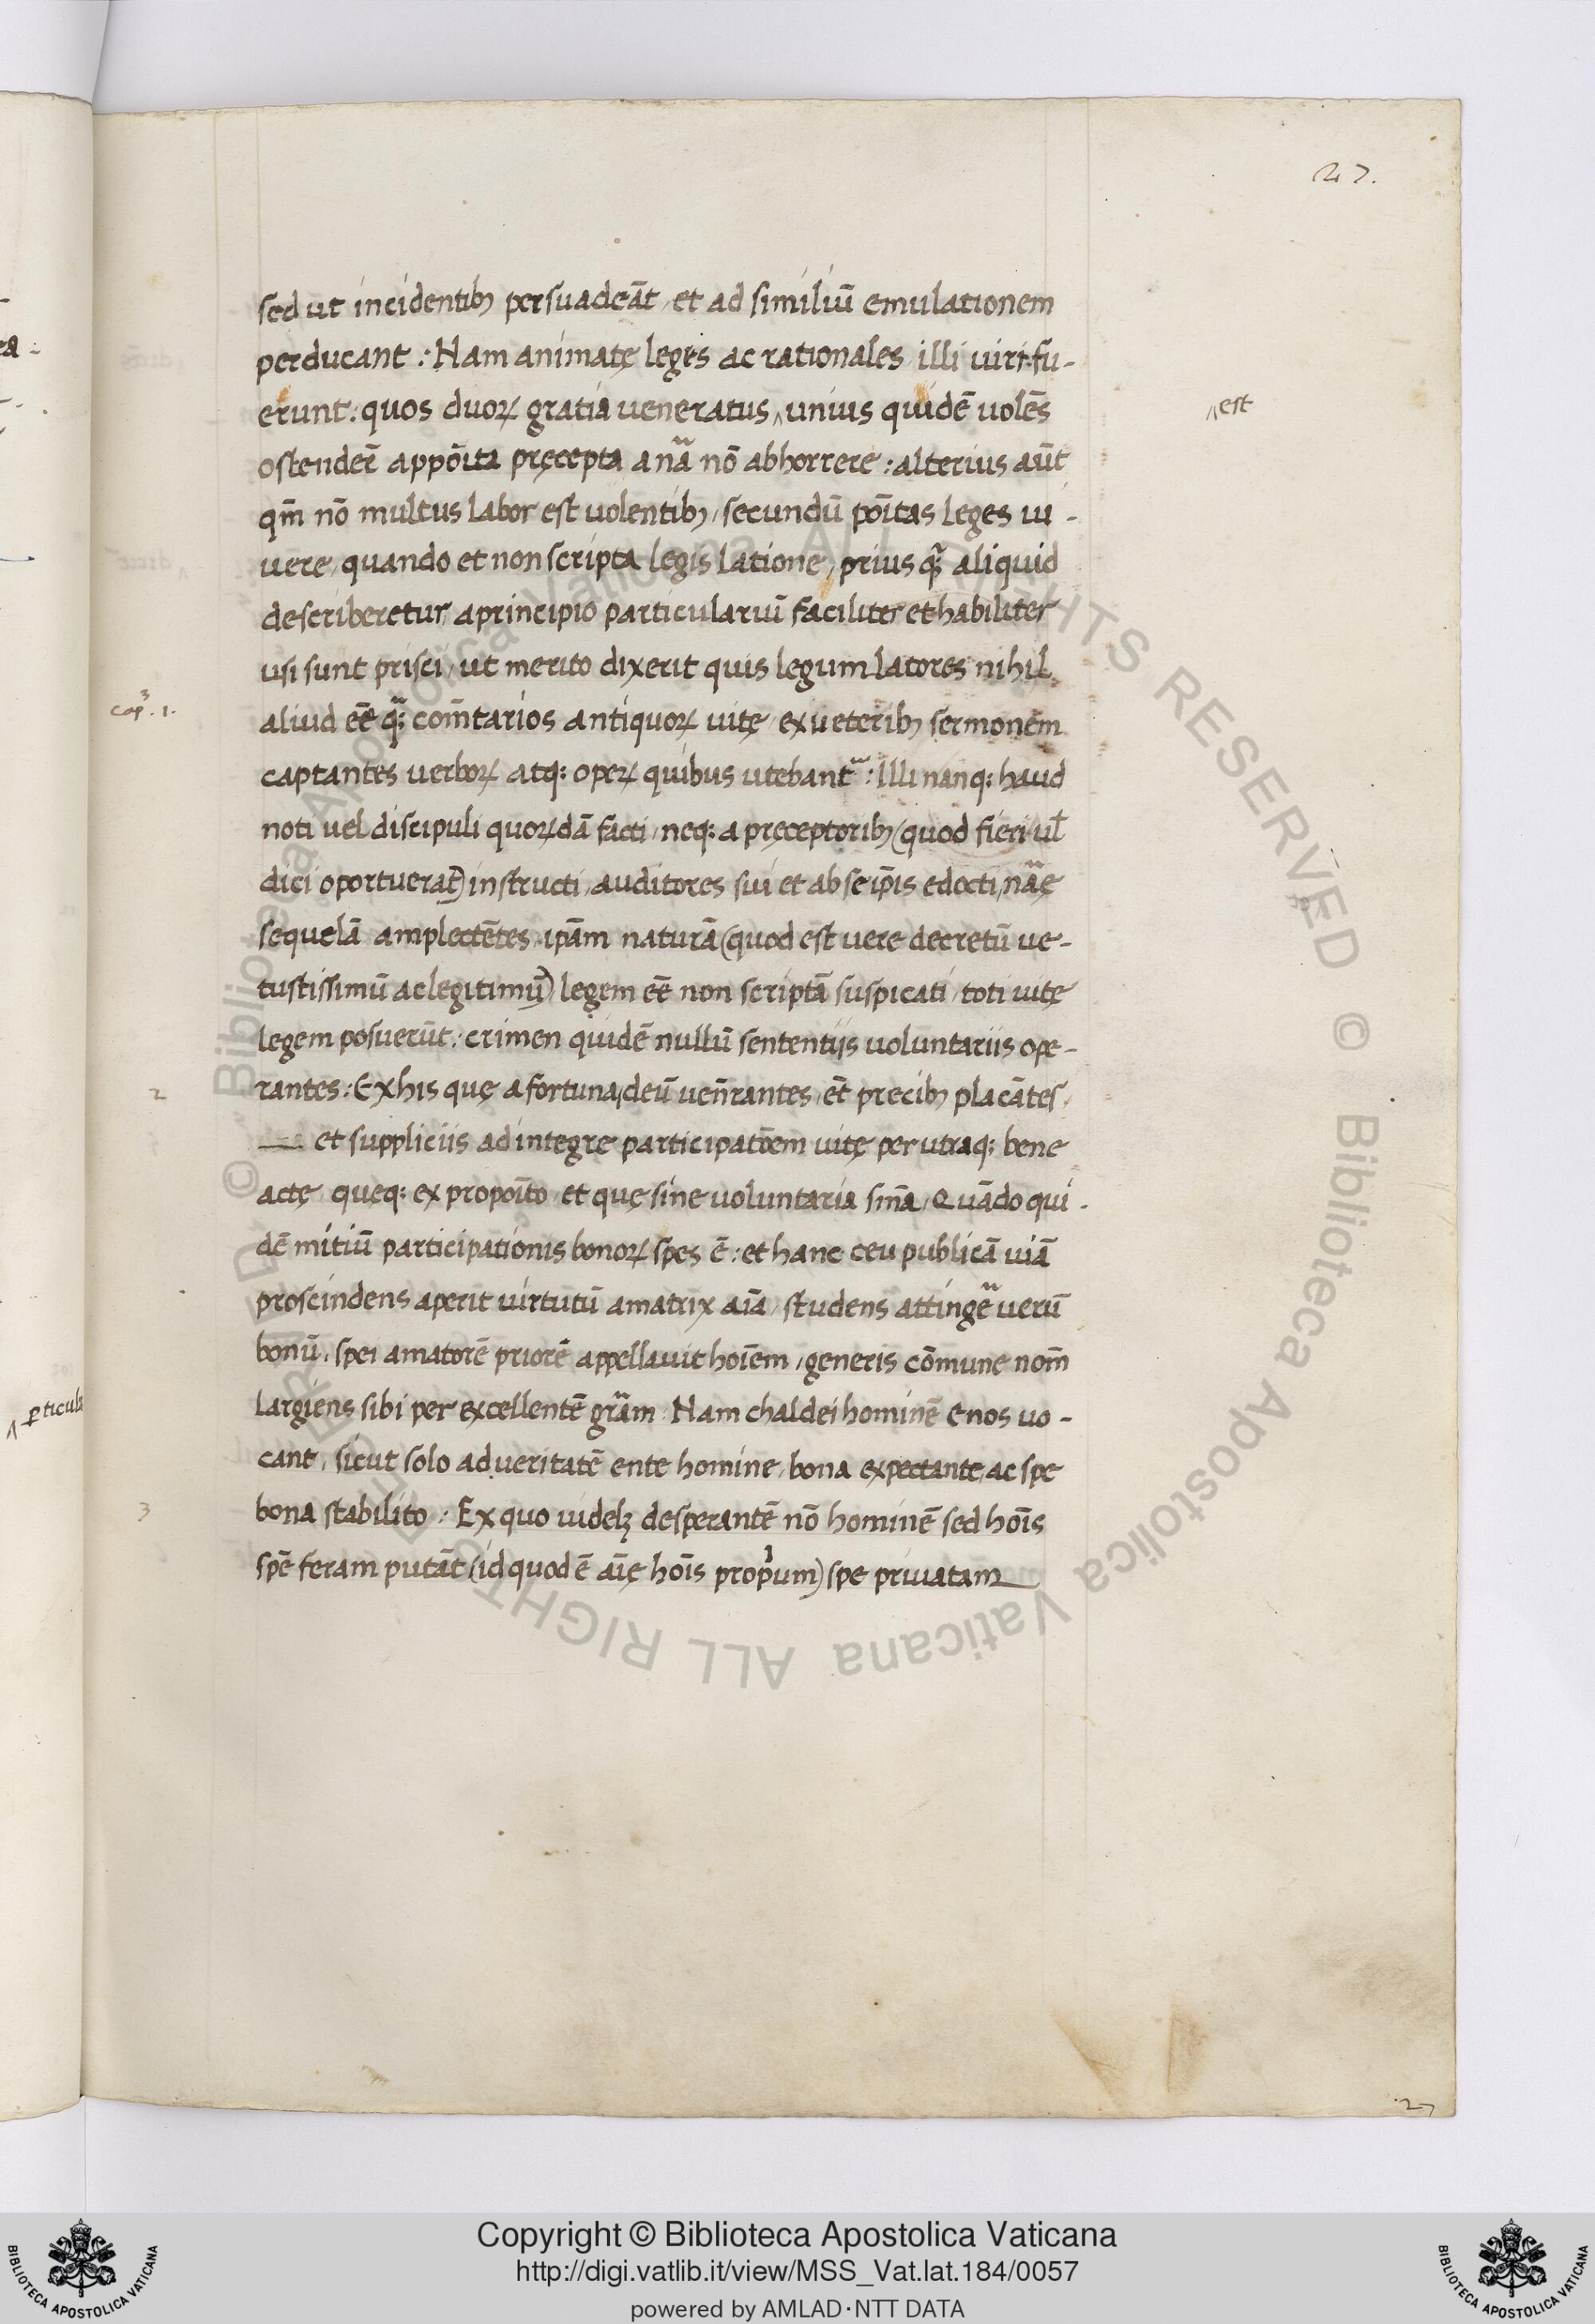 27.
sed ut incidentibꝫ persuadeāt, et ad similiū emulationem
perducant: Nam animatę leges ac rationales illi uiri fu-
erunt: quos duoꝝ gratia ueneratus ‸ unius quidē uolēs
‸est
ostender̄ appōita pręcepta a nā nō abhorrere: alterius aūt
qm̄ nō multus labor est uolentibꝫ, secundū pōitas leges ui-
uere, quando et non scripta legis latione, prius qꝫ̄ aliquid
describeretur, a principio particulariū faciliter et habiliter
usi sunt prisci, ut merito dixerit quis legum latores nihil
cap̄. 1. 3
aliud eē̄ qꝫ̄ com̄tarios antiquoꝝ uitę, ex ueteribꝫ sermonem
captantes uerboꝝ atq: opeꝝ quibus utebant᷑: Illi nanq: haud
noti uel discipuli quoꝝdā facti, neq: a pręceptoribꝫ (quod fieri ul̄
dici oportuerat) instructi, auditores sui et ab seip̄is edocti, nāę
sequelā amplectētes, ip̄am naturā (quod est uere decretū ue-
tustissimū ac legitimū) legem eē̄ non scriptā suspicati, toti uitę
legem posuerūt: crimen quidē nullū sententijs uoluntariis ope-
2
rantes: Ex his quę a fortuna, deū ven̄rantes, et precibꝫ placātes,
et suppliciis ad integre participatōem uitę per utraq: bene
actę, queq: ex propoīto, et quę sine uoluntaria sm̄a, Quādo qui-
dē mitiū participationis bonoꝝ spes ē: et hanc ceu publicā uiā
proscindens aperit uirtutū amatrix aīa, studens attingē uerū
bonū, spei amatorē priorē appellauit hoīem, generis cōmune nom̄
largiens sibi per excellentē grām: Nam chaldei hominē Enos uo-
‸ꝑticula
cant, sicut solo ad ueritatē ente homine, bona expectante, ac spe
3
bona stabilito: Ex quo uidelꝫ desperantē nō hominē sed hoīs
spē feram putāt (id quod ē aīę hoīs prop̄um) spe priuatam
27
© Biblioteca Apostolica Vaticana ALL RIGHTS RESERVED © Biblioteca Apostolica Vaticana ALL RIGHTS RESERVED
BIBLIOTECA APOSTOLICA VATICANA
Copyright © Biblioteca Apostolica Vaticana
http://digi.vatlib.it/view/MSS_Vat.lat.184/0057
powered by AMLAD·NTT DATA
BIBLIOTECA APOSTOLICA VATICANA